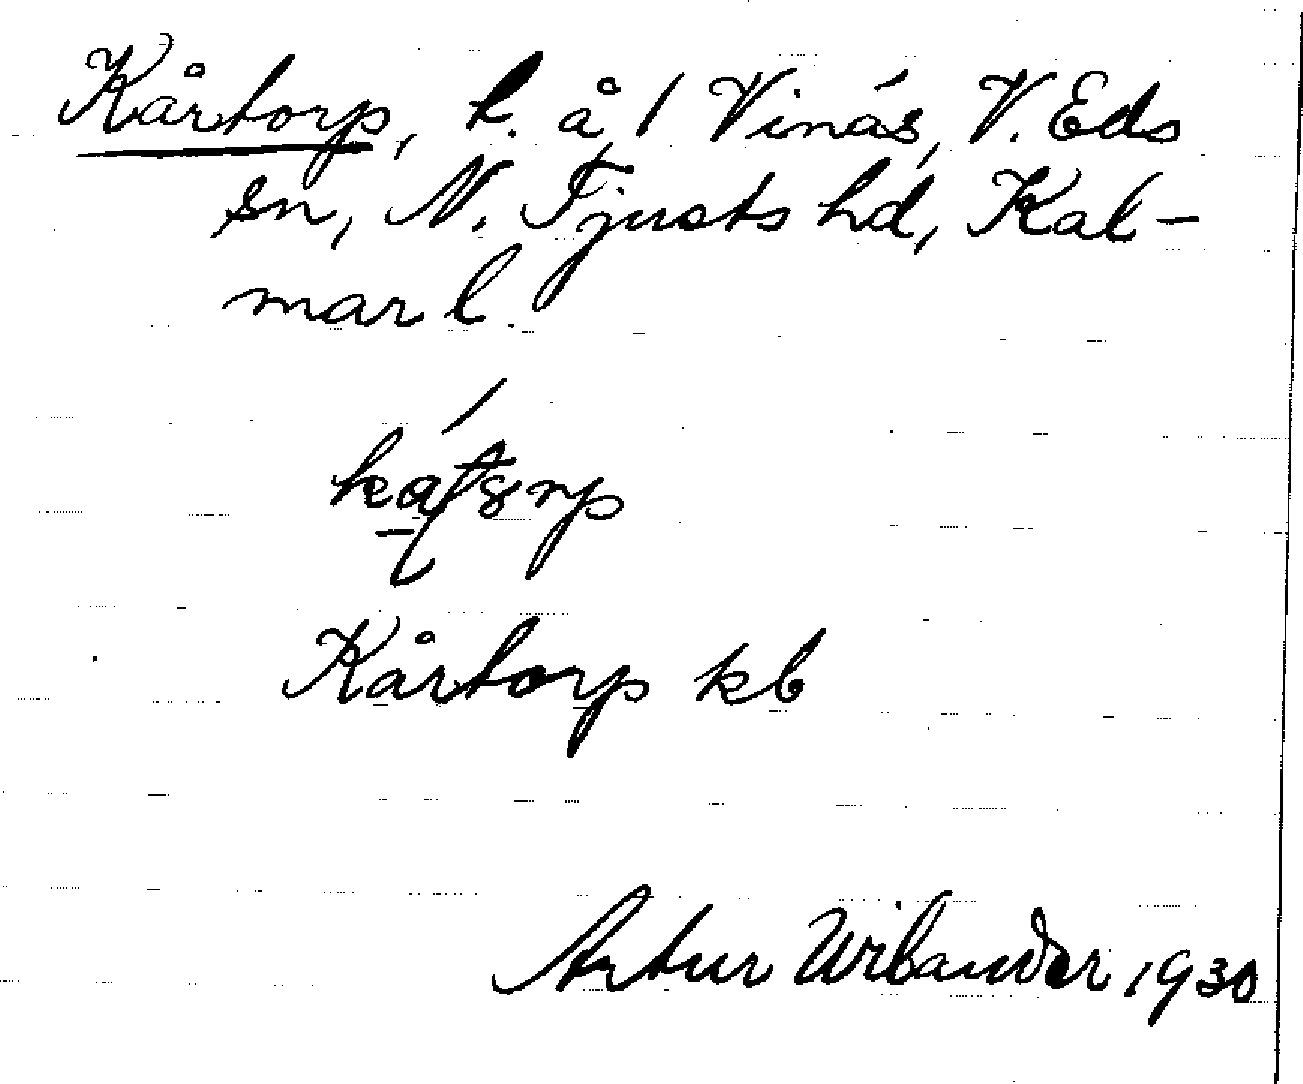 Kårtorp, l. å 1 Vinäs, V. Eds
sn, N. Tjusts hd, Kal-
mar l.
Kårtorp kb
Artur Wilander 1930